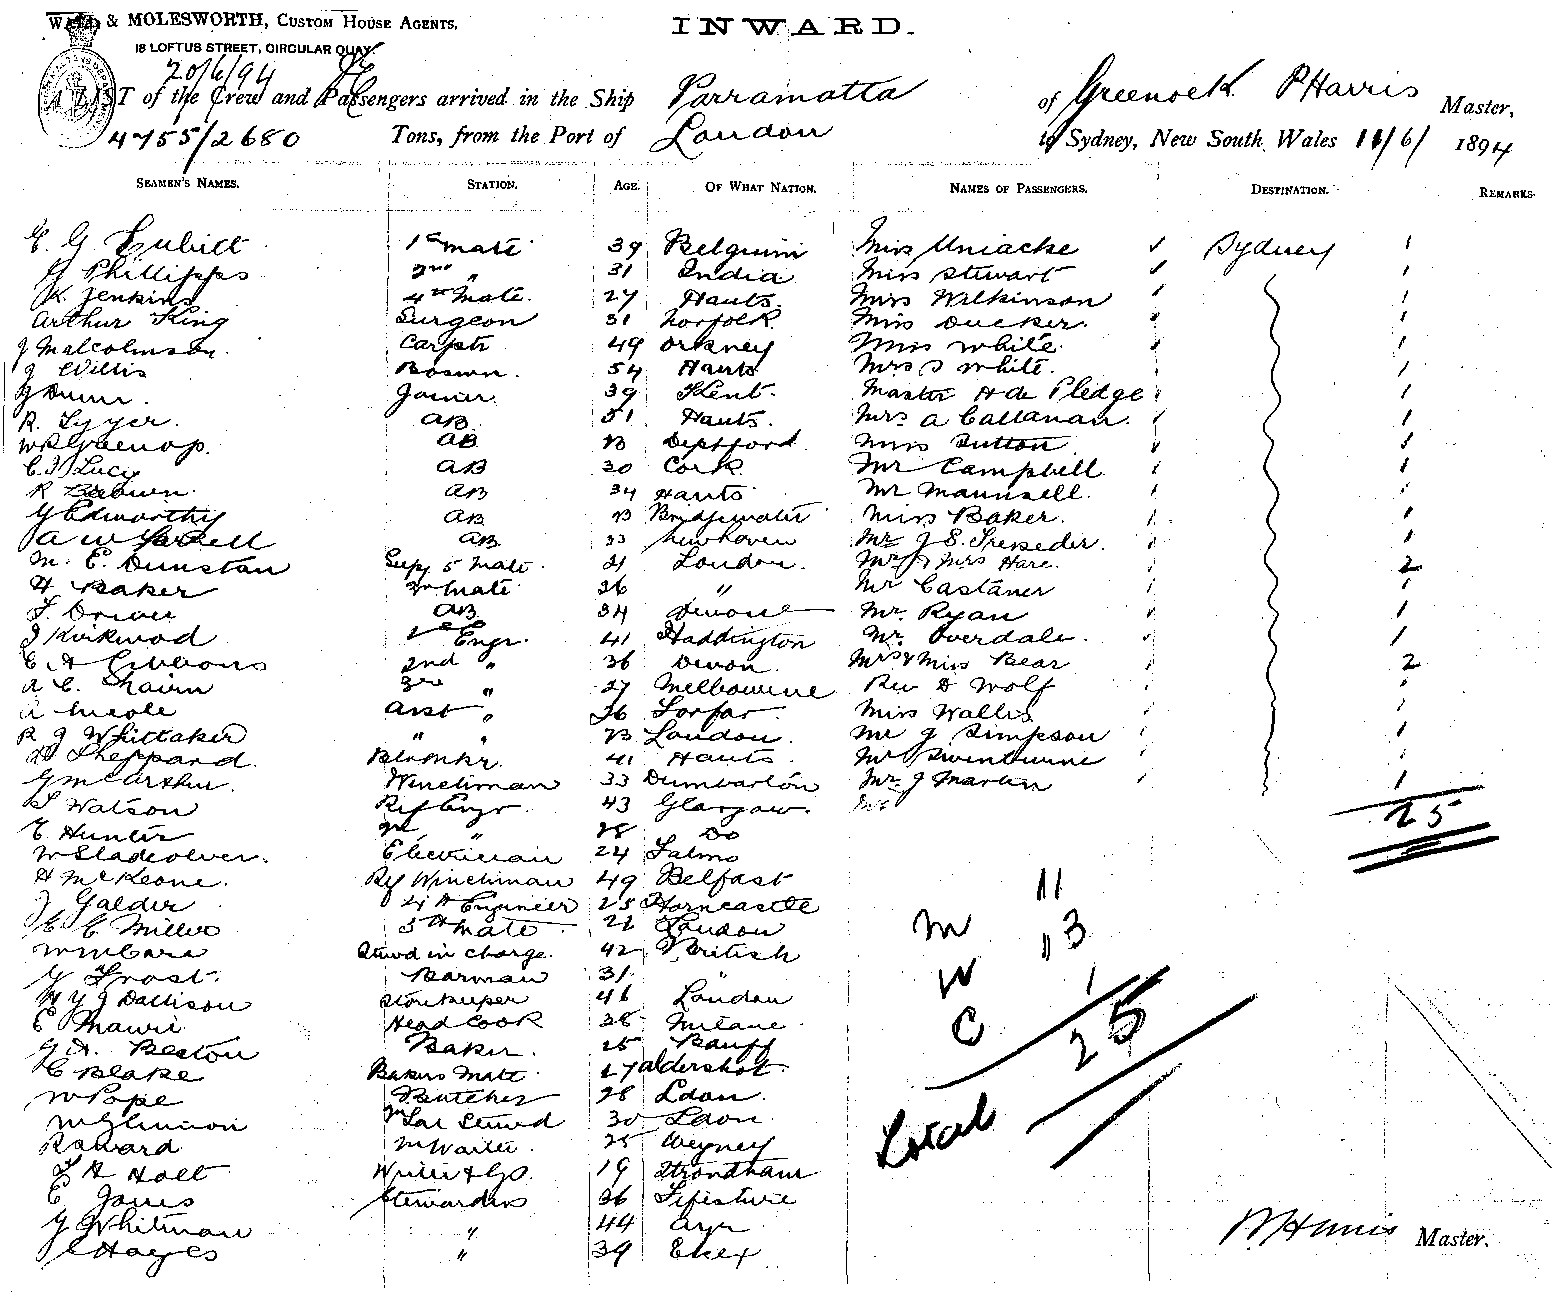 WATT & MOLESWORTH, CUSTOM HOUSE AGENTS,
18 LOFTUS STREET, CIRCULAR QUAY
INWARD.
20/6/94
A LIST of the Crew and Passengers arrived in the Ship Parramatta of Greenock P Harris Master,
4755/2680 Tons, from the Port of London to Sydney, New South Wales 11/6/ 1894
SEAMEN'S NAMES. STATION. AGE. OF WHAT NATION. NAMES OF PASSENGERS. DESTINATION. REMARKS.
E. G. 1st mate 39 Belgium Miss Uniacke Sydney 1
G Phillipps 2nd " 31 India Miss Stewart 1
K Jenkins 4th Mate. 27 Hants. Miss Wilkinson 1
Arthur King Surgeon 31 Norfolk Miss Ducker. 1
J Malcolmson. Carptr 49 Orkney Miss White. 1
J Willis Boswn. 54 Hants Mrs S White. 1
J Dunn. Joiner. 39 Kent. Master H de Pledge 1
R. AB 51 Hants. Mrs A Callanan. 1
AB 23 Deptford Miss Sutton 1
C. J Lucy AB 30 Cork Mr Campbell 1
R Brown. AB 34 Hants Mr Maunsell. 1
G Edworthy AB 23 Bridgewater Miss Baker. 1
A W AB 33 Newhaven Mr J S. Treseder. 1
M. E. Dunstan Supy 5 Mate. 21 London. Mr & Mrs Hare. 2
H Baker 3rd Mate 26 " Mr Castaner 1
F. Driver AB 34 Mr. Ryan 1
J Kirkwood 1st Engr. 41 Haddington Mr. Overdale. 1
E A Gibbons 2nd " 36 Devon. Mrs & Miss Bear 2
A C. 3rd " 27 Melbourne Rev D Wolf 1
A Nicole Asst " 26 Forfar. Miss Wallis 1
R J Whittaker " " 23 London. Mr J Simpson 1
Sheppard. Blrmkr. 41 Hants. Mr Swinburne 1
G McArthur. Winchman 33 Dumbarton Mr J Martin 1
S Watson Ref Engr. 43 Glasgow. 25
E Hunter " 28 Do
W Electrician 24
H McKeone. Ref Winchman 49 Belfast 11
J Galder 4th Engineer 25 Horncastle M
C Miller 5th Mate 22 London 13
Stwd in charge. 42 British W
G Frost. Barman 31. " 1
H Y J Dallison Storekeeper 46 London C
E Mauri Head Cook 38 25
G A. Beston Baker. 25 Banff
C Blake Bakers Mate 27 Aldershot
W Pope Butcher 28 Ldon.
30 Ldon. Total
R Seward Waiter. 25
F A Holt 19
E Jones Stewardess 36
G Whitman " 44 Ayr
Hayes " 39 Essex
P Harris Master.